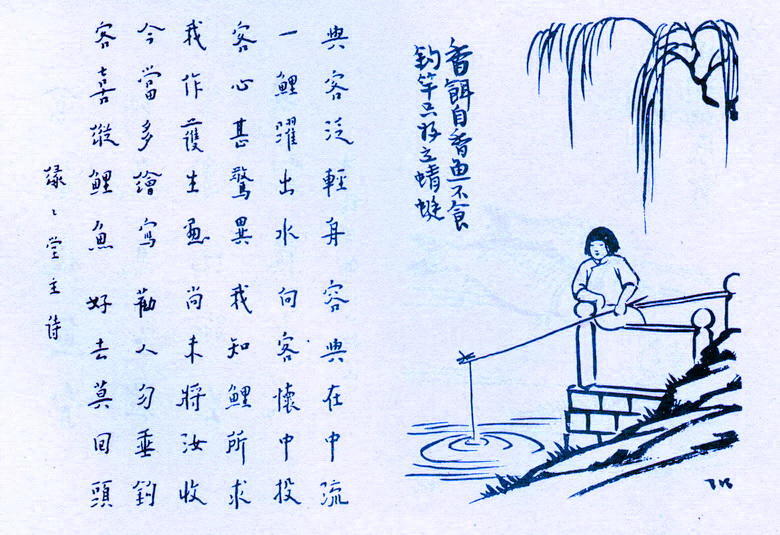 香餌自香魚不食
釣竿只好立蜻蜓
TK
與客泛輕舟 容與在中流
一鯉躍出水 向客懷中投
客心甚驚異 我知鯉所求
我作護生畫 尚未將汝收
今當多繪寫 勸人勿垂釣
客喜縱鯉魚 好去莫回頭
緣〻堂主詩